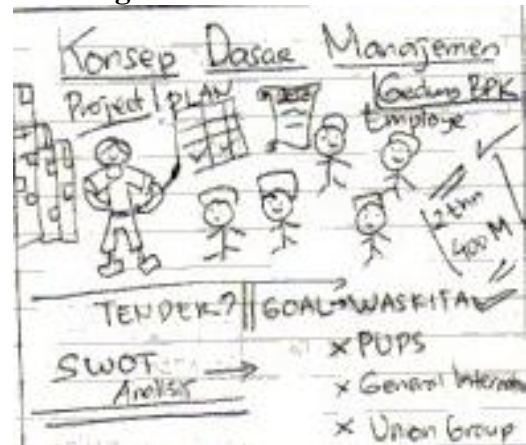 Konsep Dasar Manajemen
Project / PLAN
Gedung BPK
Employe
2 thn
400 M
TENDER? GOAL → WASKITA
SWOT
Analisis
× PUPS
× General
× Union Group